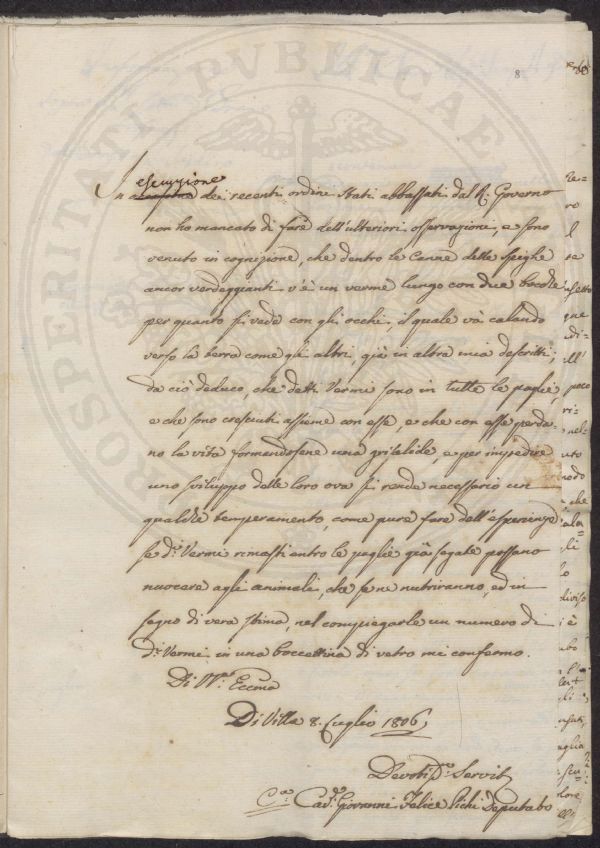 PROSPERITATI PVBLICAE
8
esecuzione
In dei recenti ordini stati abbassati dal R. Governo
non ho mancato di fare dell'ulteriori osservazioni, e sono
venuto in cognizione, che dentro le Canne delle spighe
ancor verdeggianti v'è un verme lungo con due bocche
per quanto si vede con gli occhi, il quale và calando
verso la terra come gli altri, già in altra mia descritti;
da ciò deduco, che detti Vermi sono in tutte le paglie,
e che sono cresciuti assieme con esse, e che con esse perda-
no la vita formandosene una grisalide, e per impedire
uno sviluppo delle loro ova si rende necessario un
qualche temperamento, come pure fare dell'esperienze
se d.i Vermi rimasti entro le paglie già segate possano
nuocere agli animali, che se ne nutriranno, ed in
segno di vera stima, nel compiegarle un numero di
d.i Vermi in una boccettina di vetro mi confermo.
Di V.ra Eccma
Di Villa 8. Luglio 1806
Devotis.mo Servit.
Giovanni Felice Pichi Deputato